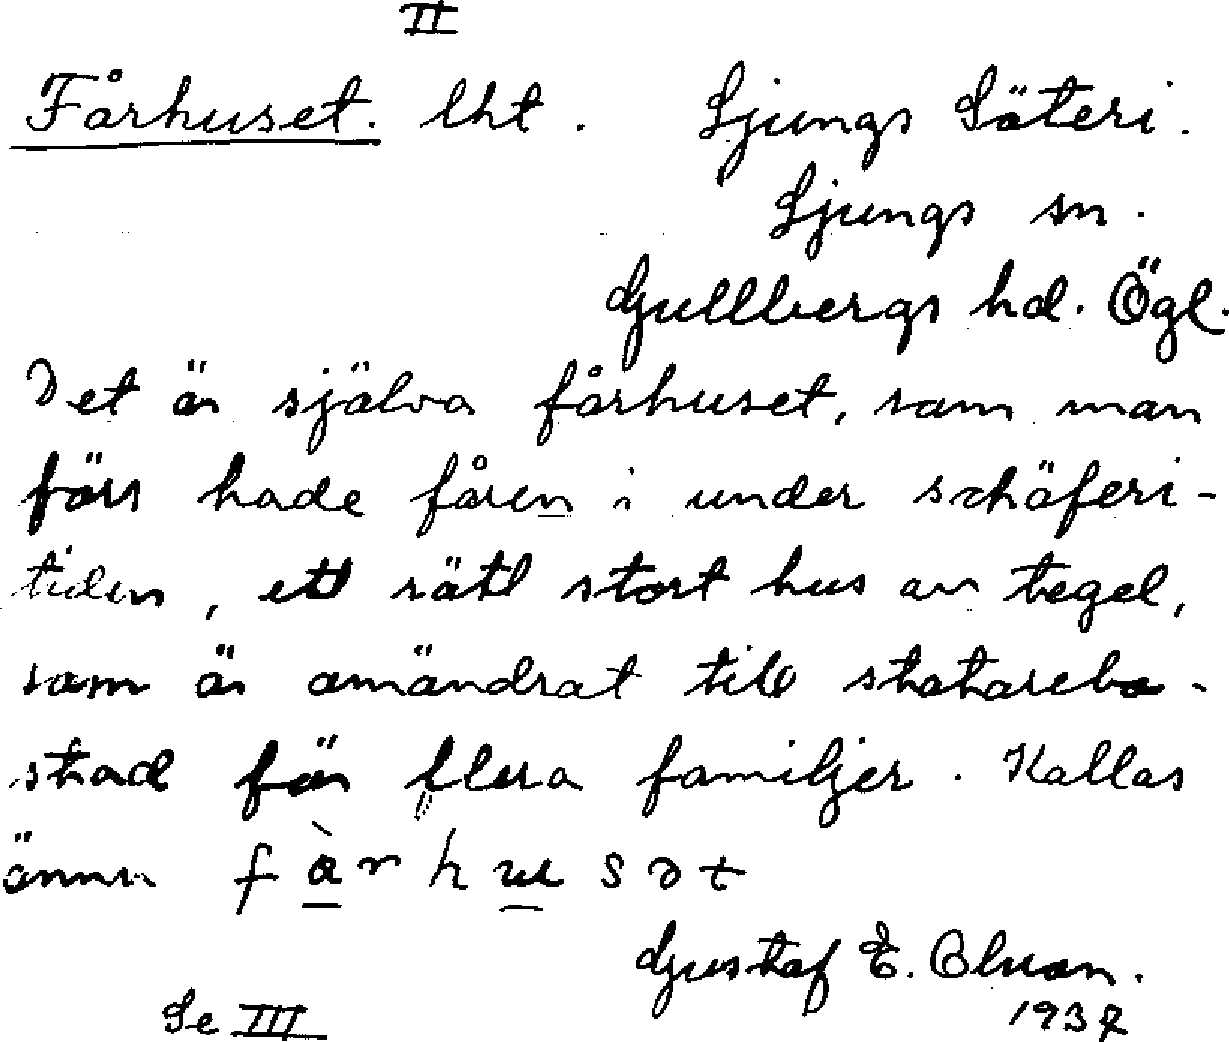 II
Fårhuset. lht. Ljungs Säteri.
Ljungs sn.
Gullbergs hd. Ögl.
Det är själva fårhuset, som man
förs hade fåren i under schäferi-
tiden, ett rätt stort hus av tegel,
som är omändrat till statarebo-
stad för flera familjer. Kallas
ännu
Gustaf E. Olson.
Se III 1937